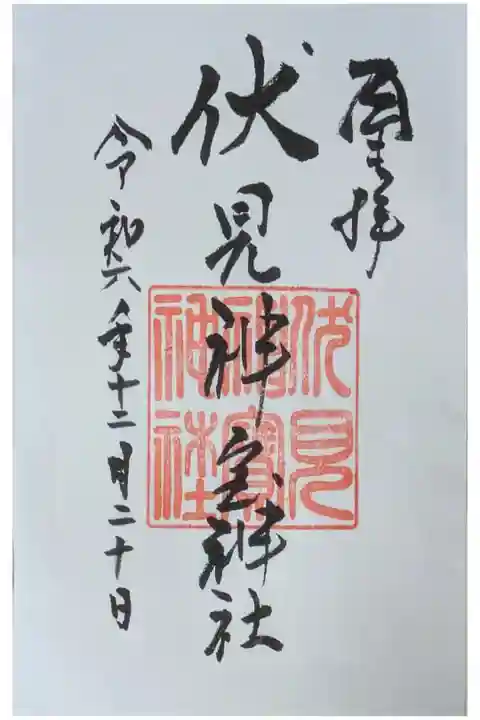 奉拝
伏見神宝神社
令和六年十二月二十日
伏見
神寳
神社